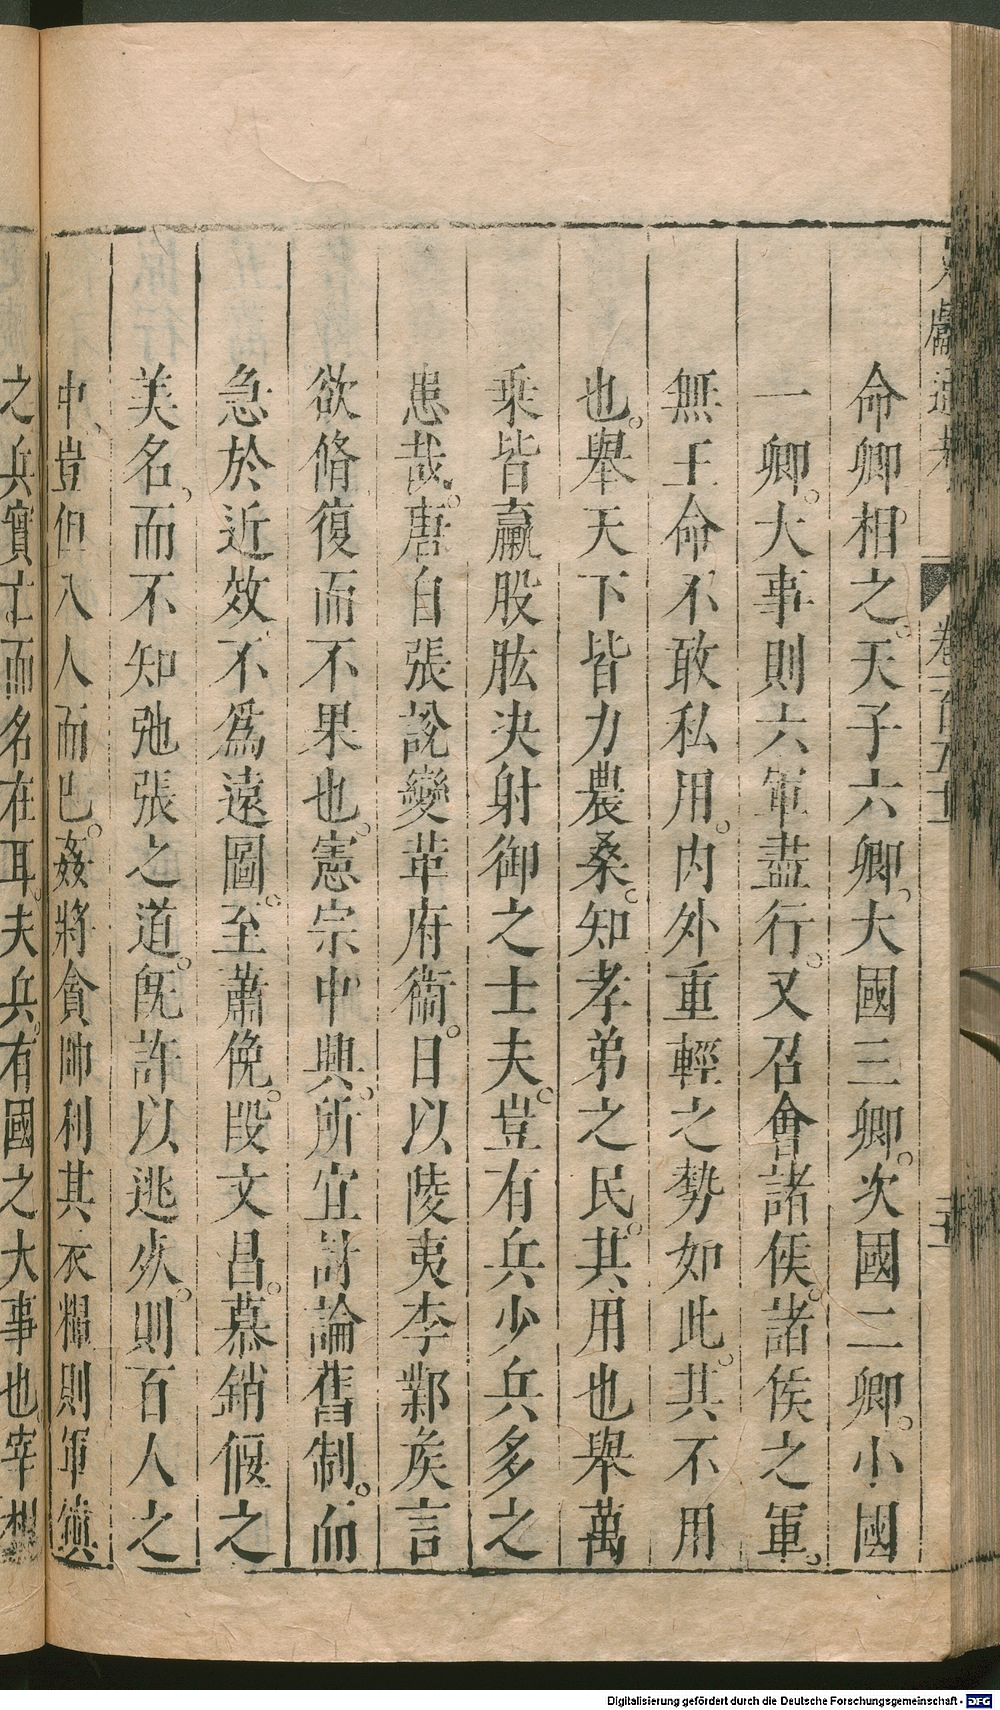 命卿相之。天子六卿。大國三卿。次國二卿。小國
一卿。大事則六軍盡行。又召會諸侯。諸侯之軍。
無王命不敢私用。内外重輕之勢如此。其不用
也。舉天下皆力農桑。知孝弟之民。其用也舉萬
乗皆羸股肱決射御之士夫。豈有兵少兵多之
患哉。唐自張說變革府衞。日以陵夷李鄴矦言
欲脩復而不果也。憲宗中興。所宜討論舊制。而
急於近效。不爲遠圖。至蕭俛。段文昌。慕銷偃之
美名。而不知弛張之道。旣許以逃死。則百人之
中、豈但八人而已。姦將貪帥利其衣糧則軍鎮
之兵實亡而名在耳。夫兵。有國之大事也。宰相
卷一百五十一
Digitalisierung gefördert durch die Deutsche Forschungsgemeinschaft - DFG